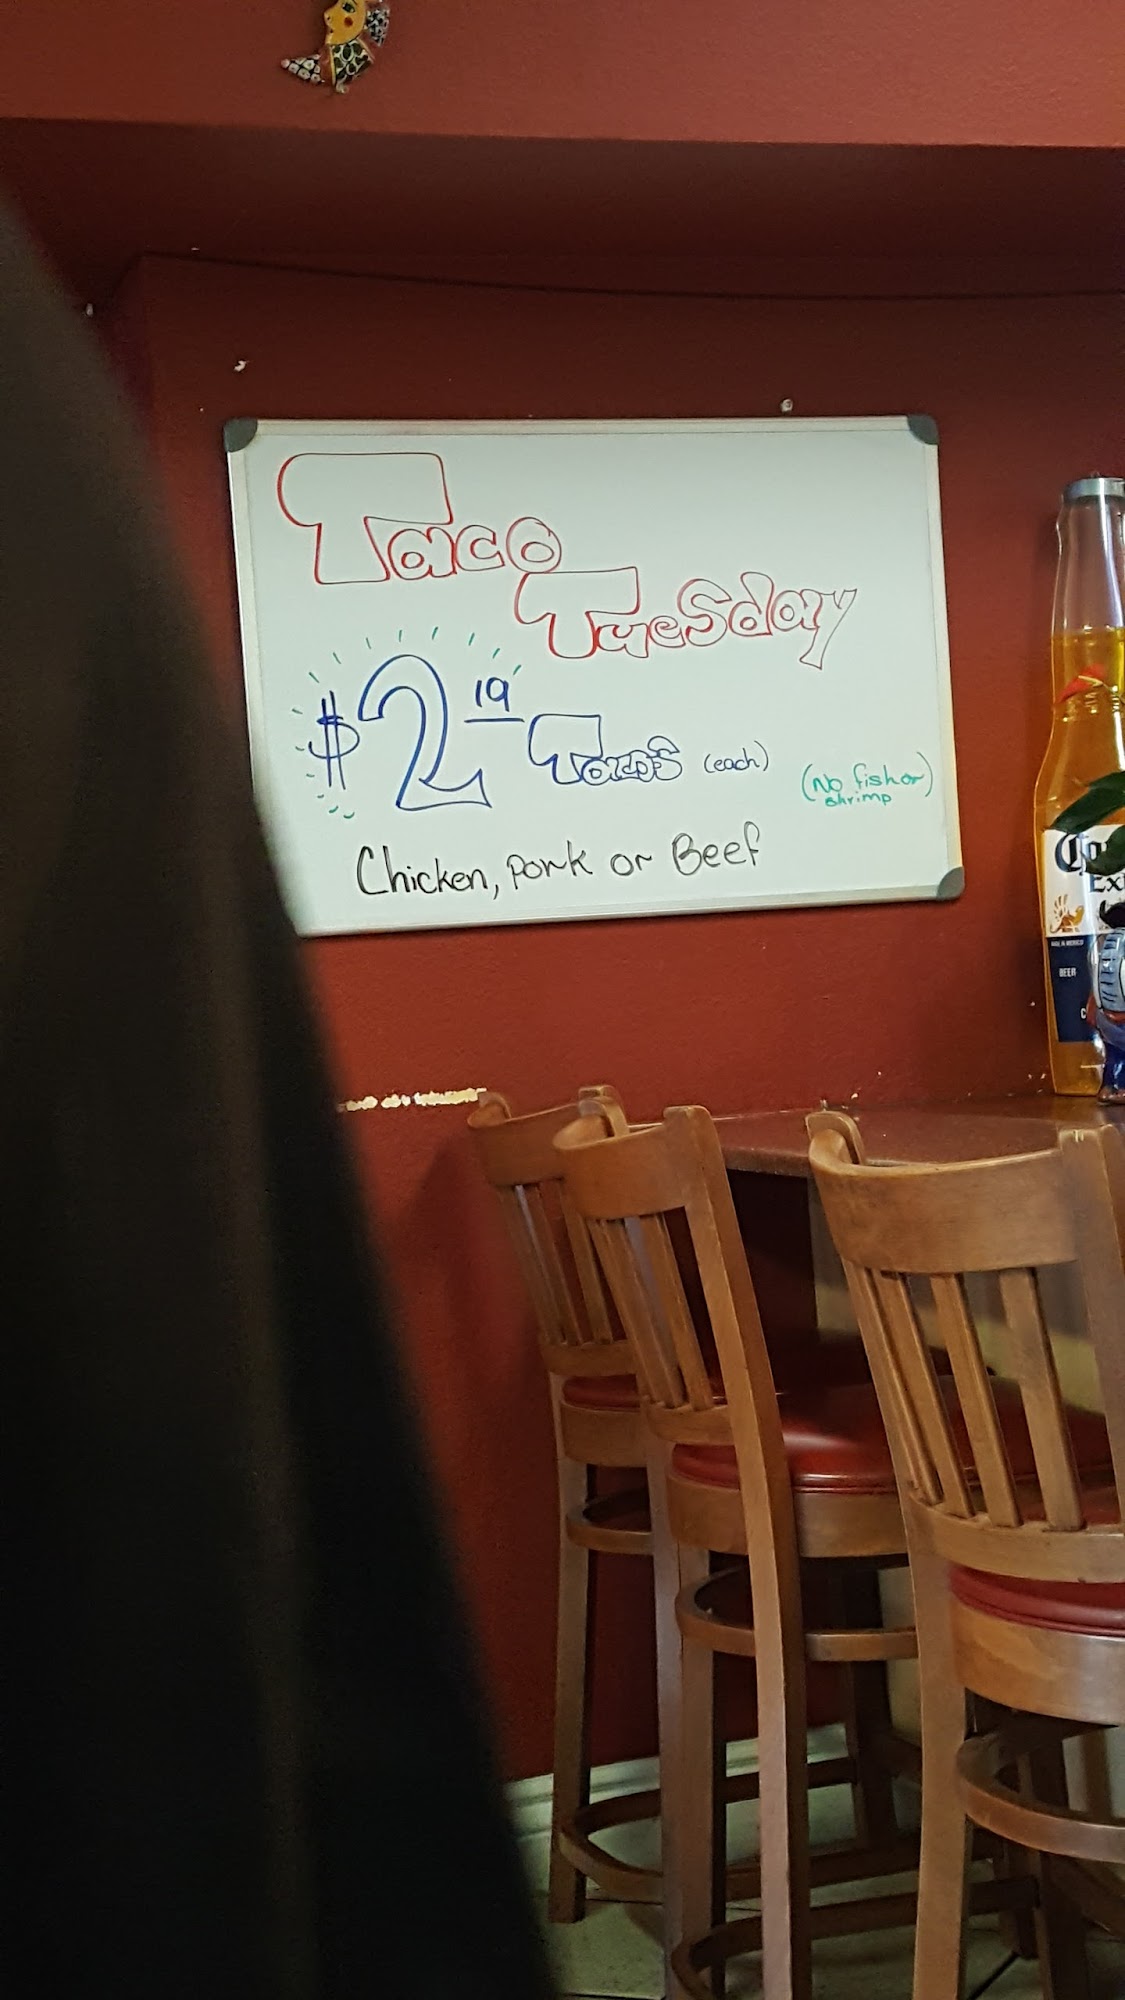 Taco
Tuesday
$2 19 Tacos (each)
(No fish or
shrimp)
Chicken, Pork or Beef
Extra
MADE IN MEXICO
BEER